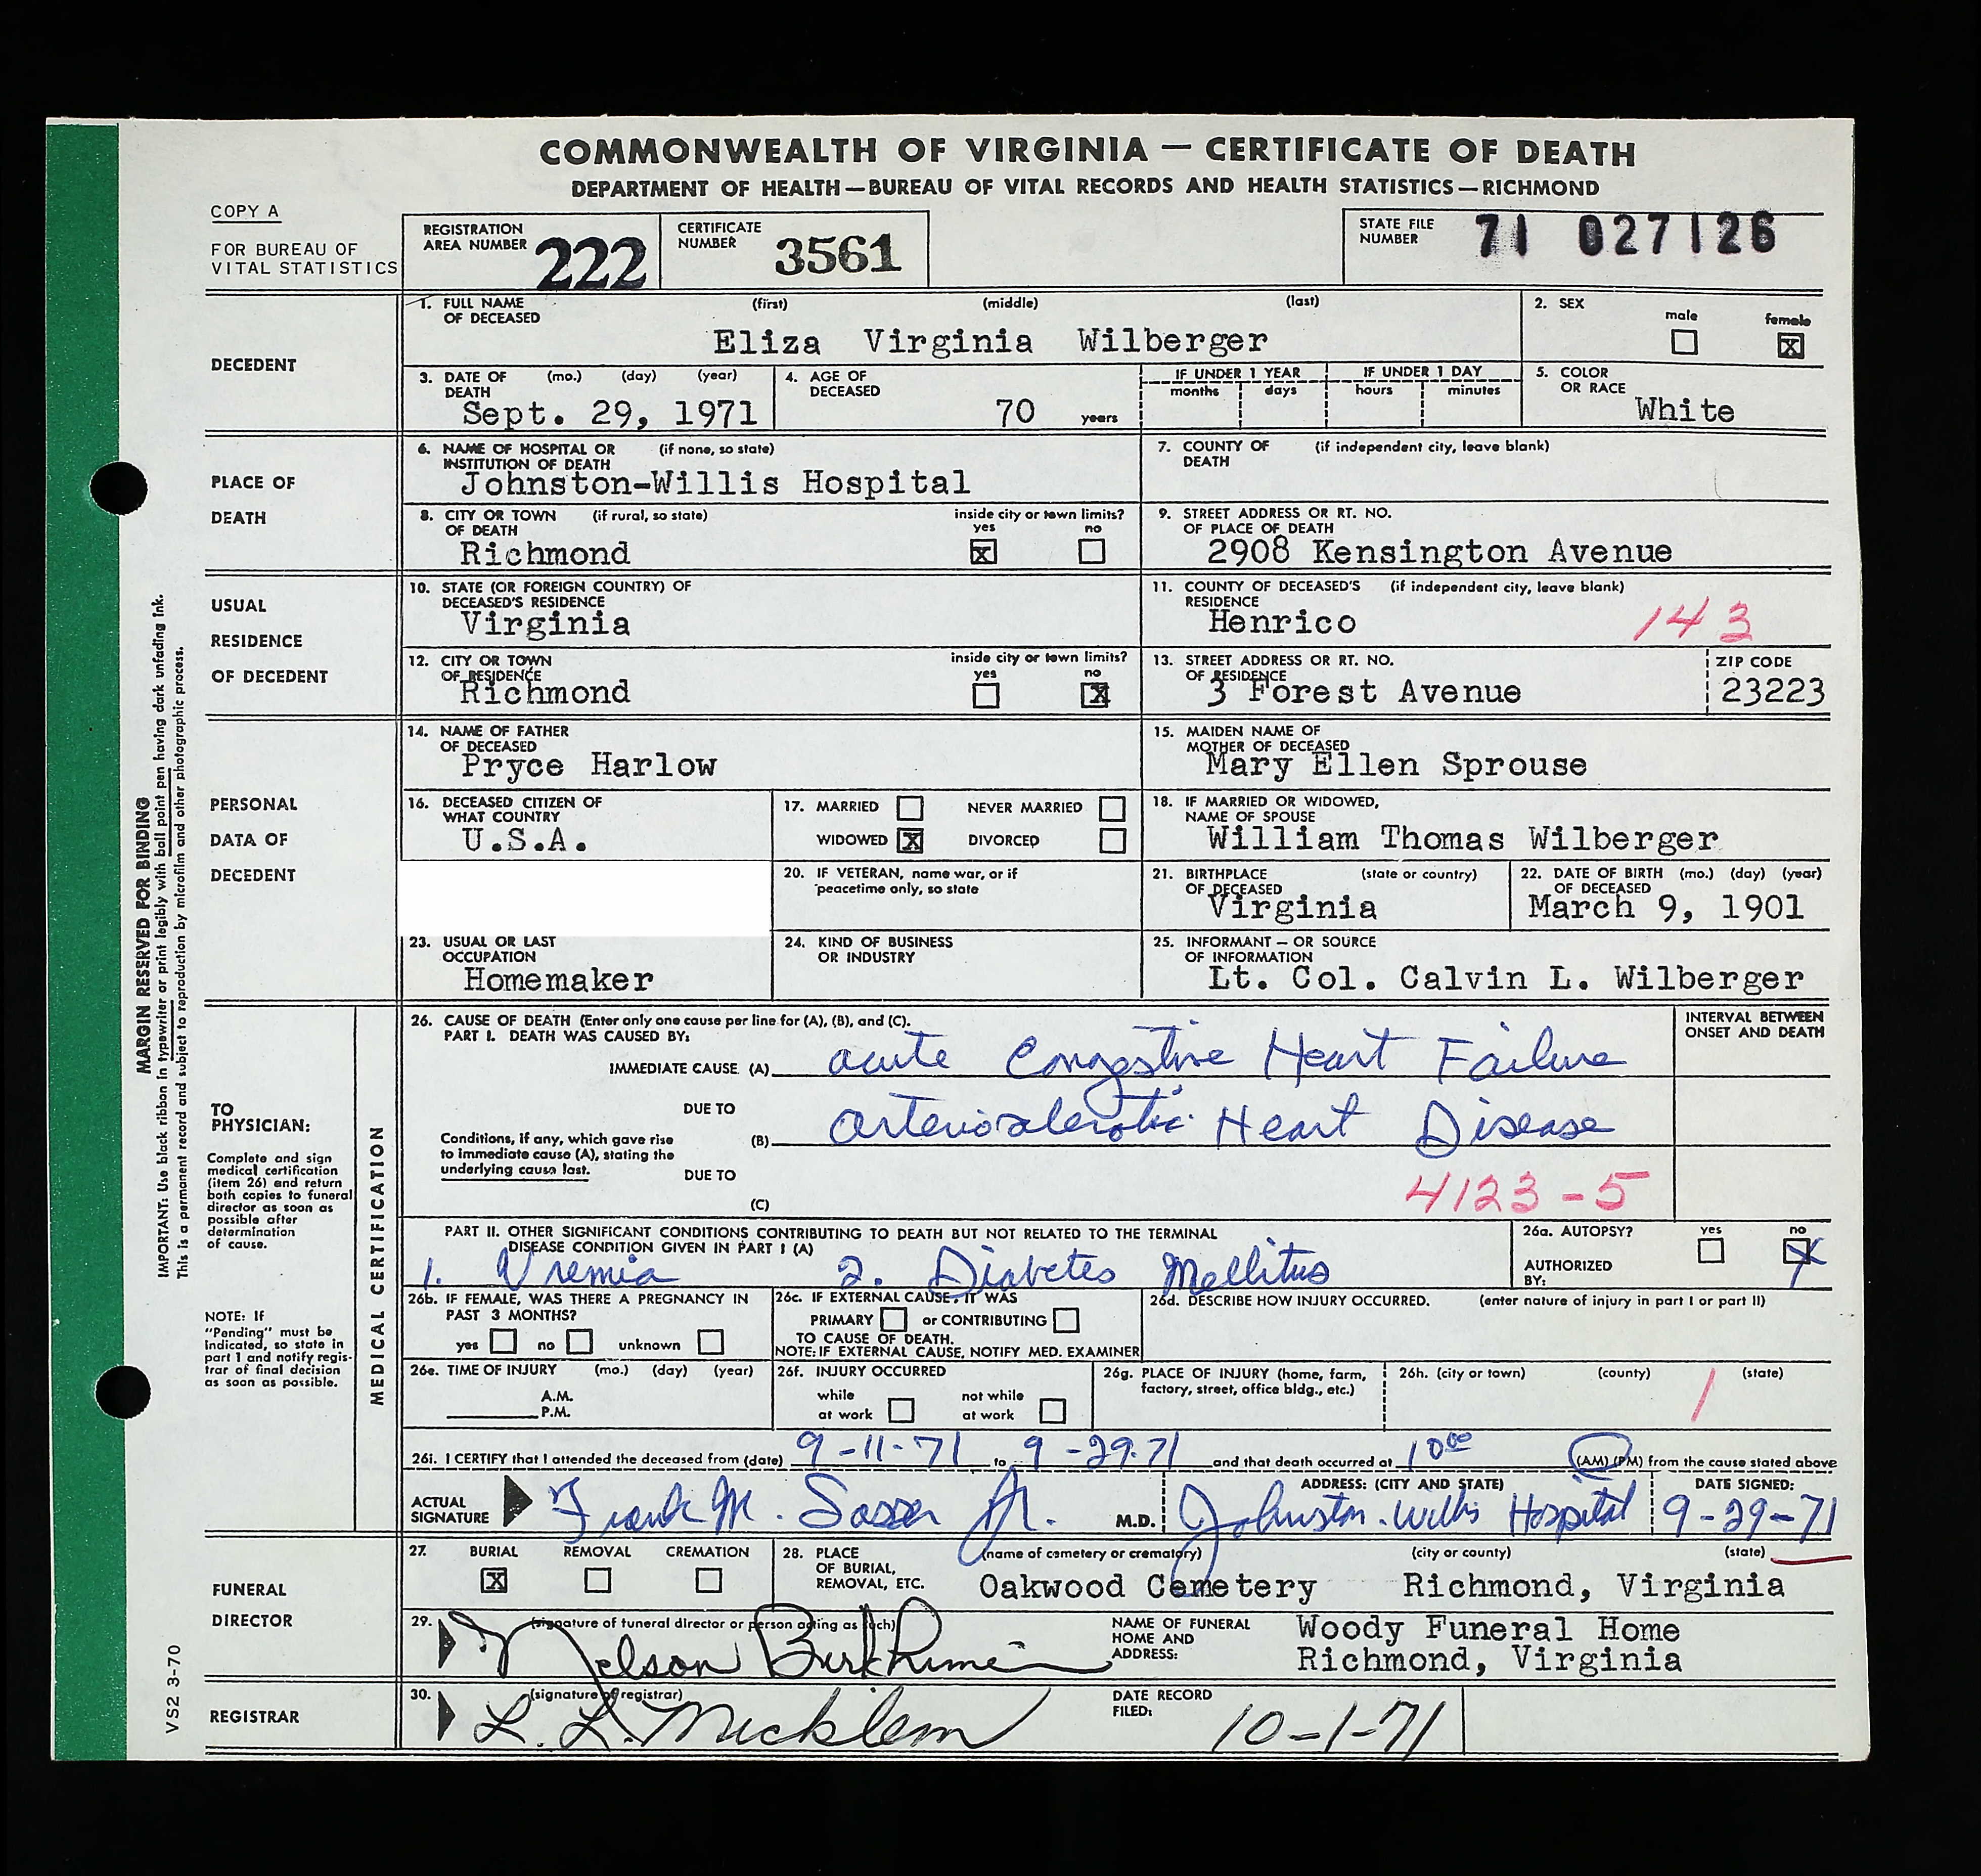 COMMONWEALTH OF VIRGINIA — CERTIFICATE OF DEATH
DEPARTMENT OF HEALTH — BUREAU OF VITAL RECORDS AND HEALTH STATISTICS — RICHMOND
COPY A
FOR BUREAU OF
VITAL STATISTICS
REGISTRATION
AREA NUMBER 222
CERTIFICATE
NUMBER 3561
STATE FILE
NUMBER 71 027126
DECEDENT
1. FULL NAME (first) (middle) (last)
OF DECEASED
Eliza Virginia Wilberger
2. SEX
male female
X
3. DATE OF (mo.) (day) (year)
DEATH
Sept. 29, 1971
4. AGE OF
DECEASED
70 years
IF UNDER 1 YEAR
months days
IF UNDER 1 DAY
hours minutes
5. COLOR
OR RACE
White
PLACE OF
DEATH
6. NAME OF HOSPITAL OR (if none, so state)
INSTITUTION OF DEATH
Johnston-Willis Hospital
7. COUNTY OF (if independent city, leave blank)
DEATH
8. CITY OR TOWN (if rural, so state) inside city or town limits?
OF DEATH yes no
Richmond X
9. STREET ADDRESS OR RT. NO.
OF PLACE OF DEATH
2908 Kensington Avenue
USUAL
RESIDENCE
OF DECEDENT
10. STATE (OR FOREIGN COUNTRY) OF
DECEASED'S RESIDENCE
Virginia
11. COUNTY OF DECEASED'S (if independent city, leave blank)
RESIDENCE
Henrico 143
12. CITY OR TOWN inside city or town limits?
OF RESIDENCE yes no
Richmond X
13. STREET ADDRESS OR RT. NO.
OF RESIDENCE
3 Forest Avenue
ZIP CODE
23223
PERSONAL
DATA OF
DECEDENT
14. NAME OF FATHER
OF DECEASED
Pryce Harlow
15. MAIDEN NAME OF
MOTHER OF DECEASED
Mary Ellen Sprouse
16. DECEASED CITIZEN OF
WHAT COUNTRY
U.S.A.
17. MARRIED NEVER MARRIED
WIDOWED X DIVORCED
18. IF MARRIED OR WIDOWED,
NAME OF SPOUSE
William Thomas Wilberger
20. IF VETERAN, name war, or if
peacetime only, so state
21. BIRTHPLACE (state or country)
OF DECEASED
Virginia
22. DATE OF BIRTH (mo.) (day) (year)
OF DECEASED
March 9, 1901
23. USUAL OR LAST
OCCUPATION
Homemaker
24. KIND OF BUSINESS
OR INDUSTRY
25. INFORMANT — OR SOURCE
OF INFORMATION
Lt. Col. Calvin L. Wilberger
MARGIN RESERVED FOR BINDING
IMPORTANT: Use black ribbon in typewriter or print legibly with ball point pen having dark unfading ink.
This is a permanent record and subject to reproduction by microfilm and other photographic process.
TO
PHYSICIAN:
Complete and sign
medical certification
(item 26) and return
both copies to funeral
director as soon as
possible after
determination
of cause.
NOTE: If
"Pending" must be
indicated, so state in
part 1 and notify regis-
trar of final decision
as soon as possible.
MEDICAL CERTIFICATION
26. CAUSE OF DEATH (Enter only one cause per line for (A), (B), and (C).
PART I. DEATH WAS CAUSED BY:
INTERVAL BETWEEN
ONSET AND DEATH
IMMEDIATE CAUSE (A) acute Congestive Heart Failure
DUE TO
(B) arteriosclerotic Heart Disease
Conditions, if any, which gave rise
to immediate cause (A), stating the
underlying cause last.
DUE TO
(C)
4123-5
PART II. OTHER SIGNIFICANT CONDITIONS CONTRIBUTING TO DEATH BUT NOT RELATED TO THE TERMINAL
DISEASE CONDITION GIVEN IN PART I (A)
1. Uremia 2. Diabetes Mellitus
26a. AUTOPSY? yes no
X
AUTHORIZED
BY:
26b. IF FEMALE, WAS THERE A PREGNANCY IN
PAST 3 MONTHS?
yes no unknown
26c. IF EXTERNAL CAUSE, IT WAS
PRIMARY or CONTRIBUTING
TO CAUSE OF DEATH.
NOTE: IF EXTERNAL CAUSE, NOTIFY MED. EXAMINER
26d. DESCRIBE HOW INJURY OCCURRED. (enter nature of injury in part I or part II)
26e. TIME OF INJURY (mo.) (day) (year)
A.M.
P.M.
26f. INJURY OCCURRED
while not while
at work at work
26g. PLACE OF INJURY (home, farm,
factory, street, office bldg., etc.)
26h. (city or town) (county) (state)
1
26i. I CERTIFY that I attended the deceased from (date) 9-11-71 to 9-29-71 and that death occurred at 10 00 (AM) (PM) from the cause stated above
ACTUAL
SIGNATURE Frank M. Sasser Jr. M.D.
ADDRESS: (CITY AND STATE)
Johnston-Willis Hospital
DATE SIGNED:
9-29-71
FUNERAL
DIRECTOR
27. BURIAL REMOVAL CREMATION
X
28. PLACE (name of cemetery or crematory) (city or county) (state)
OF BURIAL,
REMOVAL, ETC.
Oakwood Cemetery Richmond, Virginia
29. (signature of funeral director or person acting as such)
Nelson
NAME OF FUNERAL
HOME AND
ADDRESS:
Woody Funeral Home
Richmond, Virginia
REGISTRAR
30. (signature of registrar)
L. L. Micklem
DATE RECORD
FILED:
10-1-71
VS2 3-70